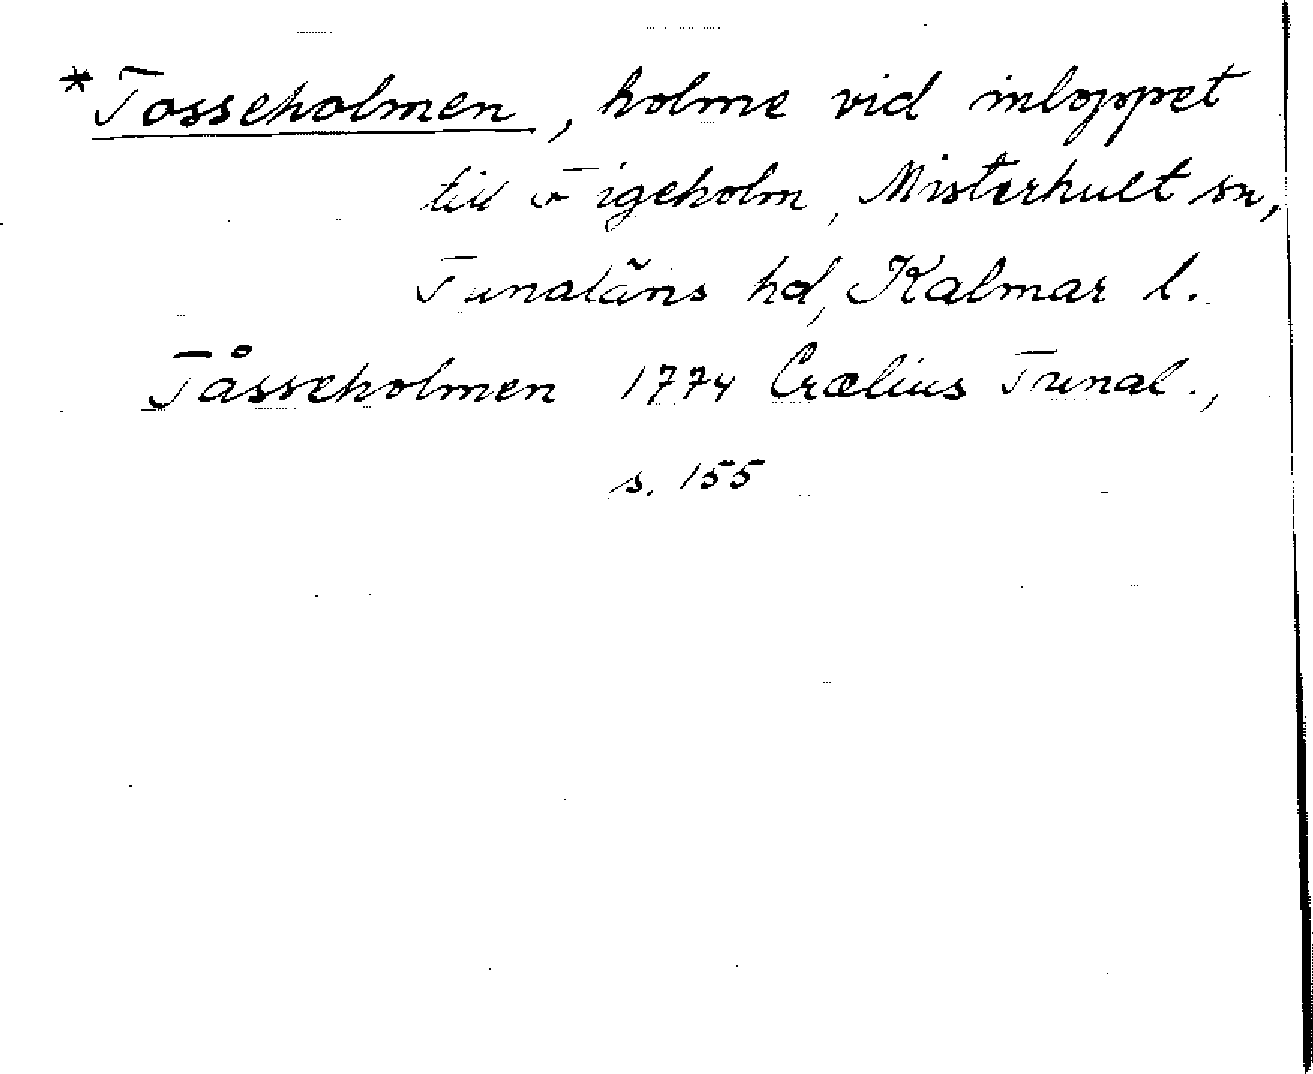 *Tosseholmen, holme vid inloppet
till Figeholm, Misterhult sn,
Tunaläns hd, Kalmar l.
Tåsseholmen 1774 Crælius Tunal.,
s. 155